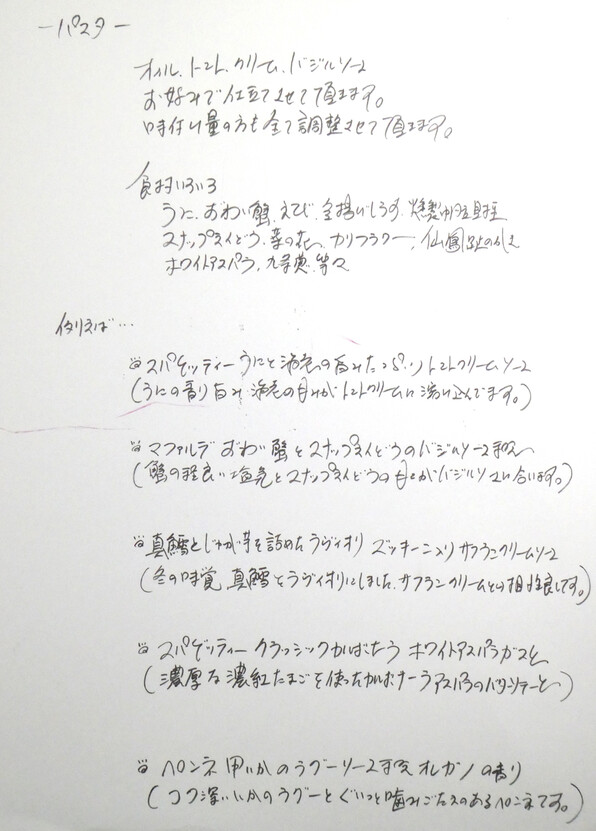 ーパスターー
オイル、トマト、クリーム、バジルソース
お好みで仕立てさせて頂きます。
味付け量の方も全て調整させて頂きます。
食材いろいろ
うに、ずわい蟹、えび、釜揚げしらす、燻製
スナップえんどう、菜の花、カリフラワー、仙鳳趾のかき
ホワイトアスパラ、九条葱、等々
例えば…
スパゲッティー うにと海老の旨みたっぷり トマトクリームソース
(うにの香り 旨み 海老の甘みがトマトクリームに溶け込んでます。)
マファルデ ずわい蟹とスナップえんどうのバジルソース和え
(蟹の程良い塩気とスナップえんどうの甘さがバジルソースに合います。)
真鱈とじゃが芋を詰めたラヴィオリ ズッキーニ入り サフランクリームソース
(冬の味覚 真鱈をラヴィオリにしました。サフランクリームとの相性良しです。)
スパゲッティー クラッシックかるぼなーら ホワイトアスパラガスと
(濃厚な濃紅たまごを使ったカルボナーラ アスパラのバターソテーと)
ペンネ 甲いかのラグーソース和え オレガノの香り
(コク深いいかのラグーと ぐいっと噛みごたえのあるペンネです。)